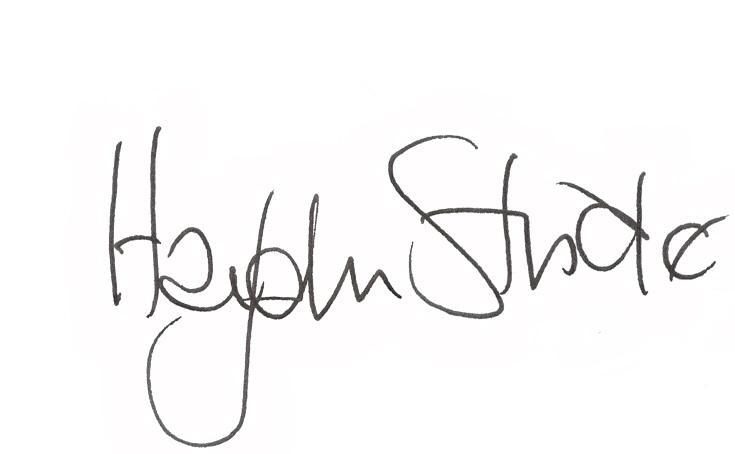 Haydn Strode